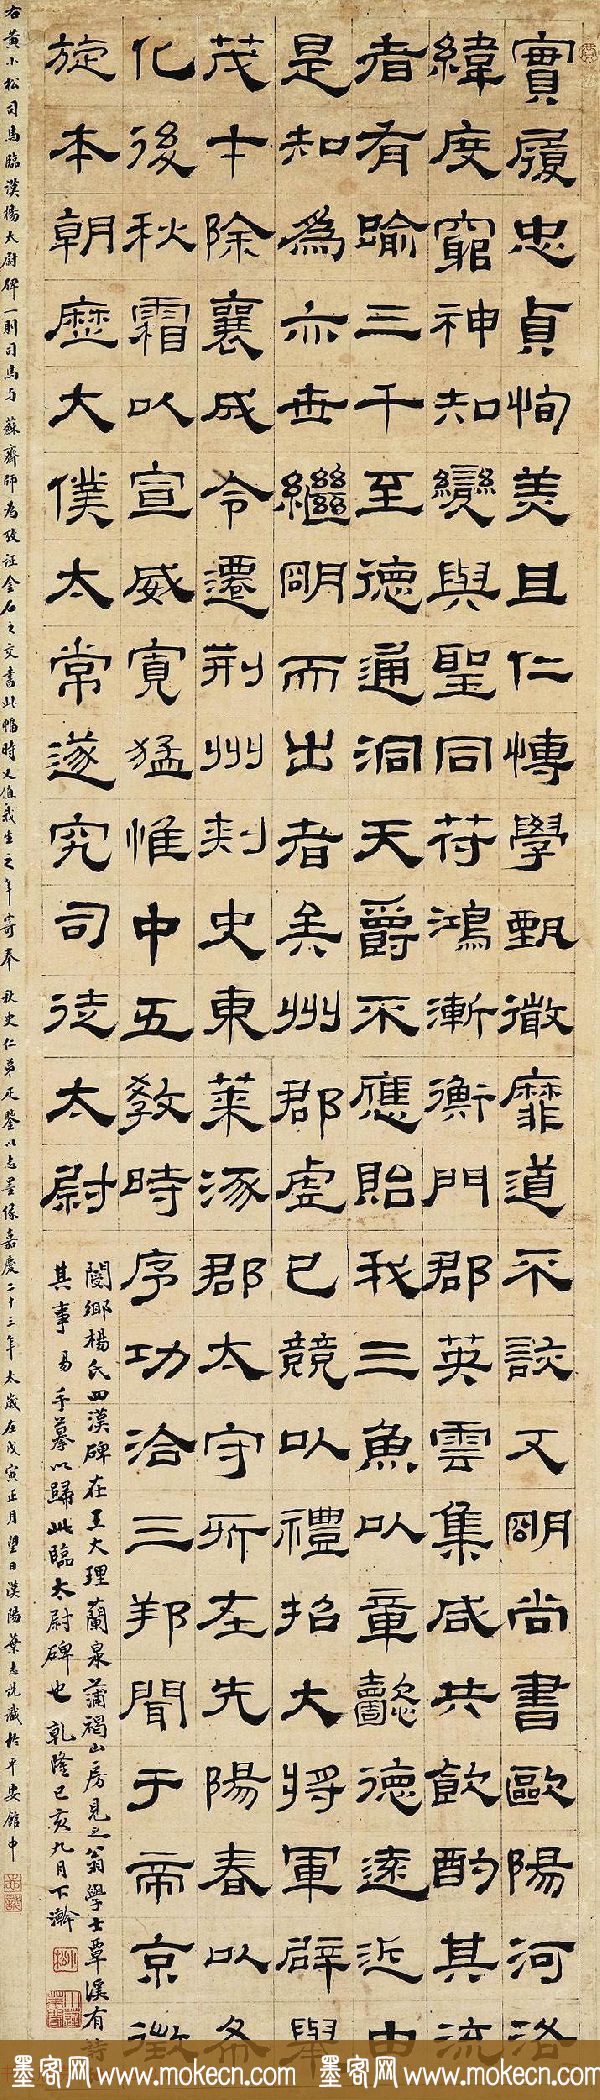 實履忠貞恂美且仁博學甄微靡道不該又明尚書歐陽河洛
緯度窮神知變與聖同苻鴻漸衡門郡英雲集咸共飲酌其流
者有踰三千至德通洞天爵不應貽我三魚以章懿德遠近由
是知為亦世繼明而出者矣州郡虛己競以禮招大將軍辟舉
茂才除襄成令遷荊州刺史東萊涿郡太守所在先陽春以布
化後秋霜以宣威寬猛惟中五教時序功洽三邦聞于帝京徵
旋本朝歷太僕太常遂究司徒太尉
閿鄉楊氏四漢碑在王大理蘭泉蒲褐山房見之翁學士覃溪有詩
其事易手摹以歸此臨太尉碑也乾隆己亥九月下澣
右黃小松司馬臨漢楊太尉碑一則司馬與蘇齋師為攷證金石之交書此幅時又值我生之年寄奉秋史仁弟正鑒以志墨緣嘉慶二十三年太歲在戊寅正月望日漢陽葉志詵識於平安館中
墨客网 www.mokecn.com 墨客网 www.mokecn.com